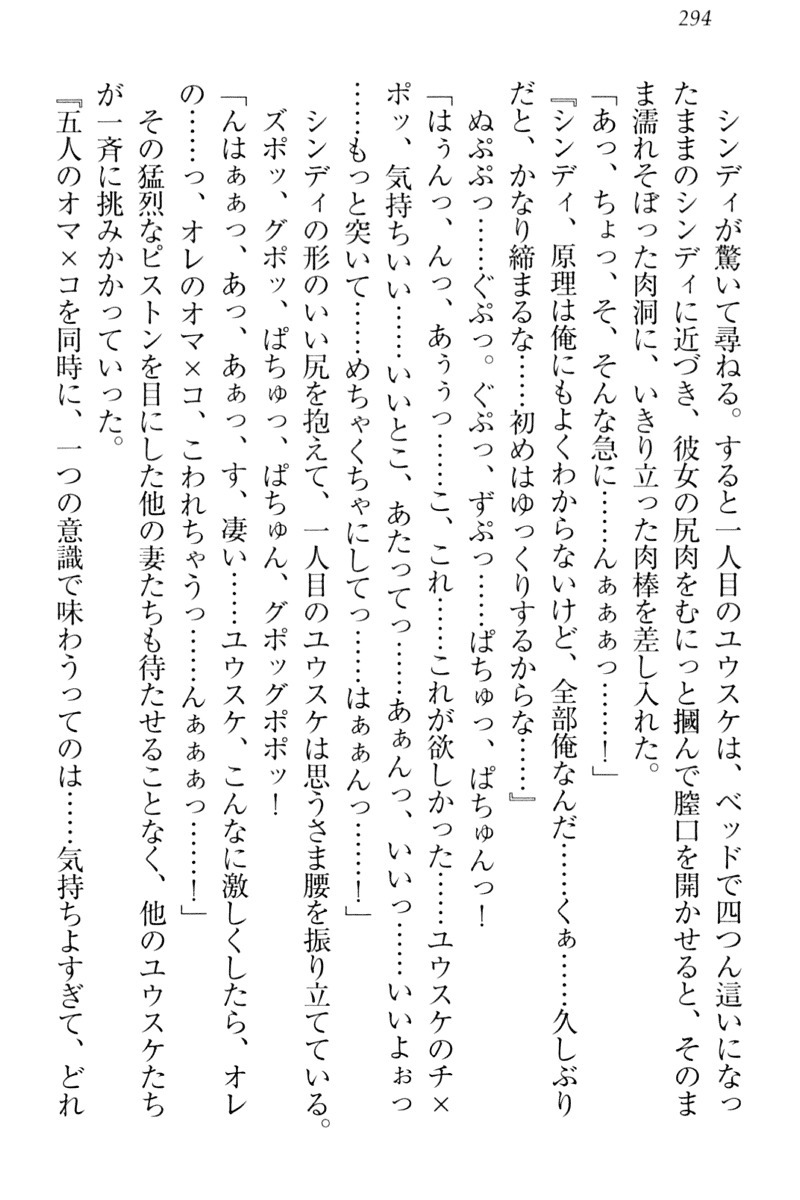 294
シンディが驚いて尋ねる。すると一人目のユウスケは、ベッドで四つん這いになっ
たままのシンディに近づき、彼女の尻肉をむにっと摑んで膣口を開かせると、そのま
ま濡れそぼった肉洞に、いきり立った肉棒を差し入れた。
「あっ、ちょっ、そ、そんな急に……んぁぁぁっ……！」
『シンディ、原理は俺にもよくわからないけど、全部俺なんだ……くぁ……久しぶり
だと、かなり締まるな……初めはゆっくりするからな……』
ぬぷぷっ……ぐぷっ。ぐぷっ、ずぷっ……ぱちゅっ、ぱちゅんっ！
「はぅんっ、んっ、あぅぅっ……こ、これ……これが欲しかった……ユウスケのチ×
ポッ、気持ちいい……いいとこ、あたってっ……あぁんっ、いいっ……いいよぉっ
……もっと突いて……めちゃくちゃにしてっ……はぁぁんっ……！」
シンディの形のいい尻を抱えて、一人目のユウスケは思うさま腰を振り立てている。
ズポッ、グポッ、ぱちゅっ、ぱちゅん、グポッグポポッ！
「んはぁぁっ、あっ、あぁっ、す、凄い……ユウスケ、こんなに激しくしたら、オレ
の……っ、オレのオマ×コ、こわれちゃうっ……んぁぁぁっ……！」
その猛烈なピストンを目にした他の妻たちも待たせることなく、他のユウスケたち
が一斉に挑みかかっていった。
『五人のオマ×コを同時に、一つの意識で味わうってのは……気持ちよすぎて、どれ